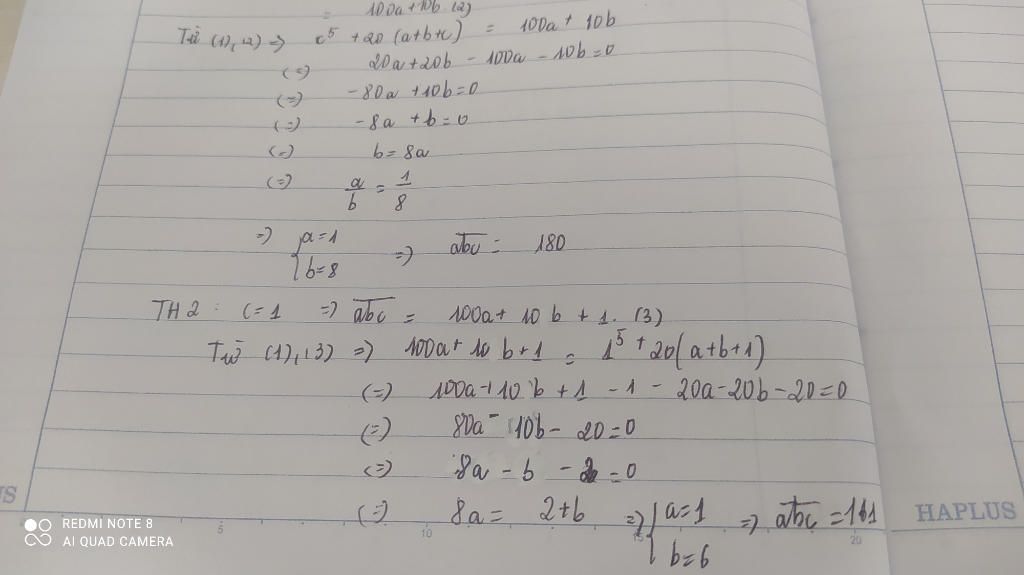 = 100a+10b (2)
Từ (1), (2) => c⁵ + 20 (a+b+c) = 100a + 10b
(=) 20a+20b - 100a - 10b = 0
(=) -80a + 10b = 0
(=) -8a + b = 0
(=) b = 8a
(=) a/b = 1/8
=> { a=1 b=8 => abc = 180
TH2 : c=1 => abc = 100a + 10b + 1. (3)
Từ (1), (3) => 100a + 10b+1 = 1⁵ + 20(a+b+1)
(=) 100a+10b + 1 - 1 - 20a-20b-20=0
(=) 80a - 10b - 20 = 0
(=) 8a - b - 2 = 0
(=) 8a = 2+b => { a=1 b=6 => abc = 161
HAPLUS
US
5 10 15 20
REDMI NOTE 8
AI QUAD CAMERA